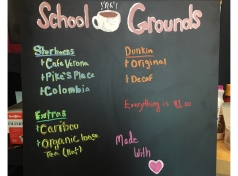 School Grounds
Starbucks
+Cafe Verona
+Pike's Place
+Colombia
Dunkin
+Original
+Decaf
Everything is $1.00
Extras
+Caribou
+Organic loose
Tea (Hot)
Made
With